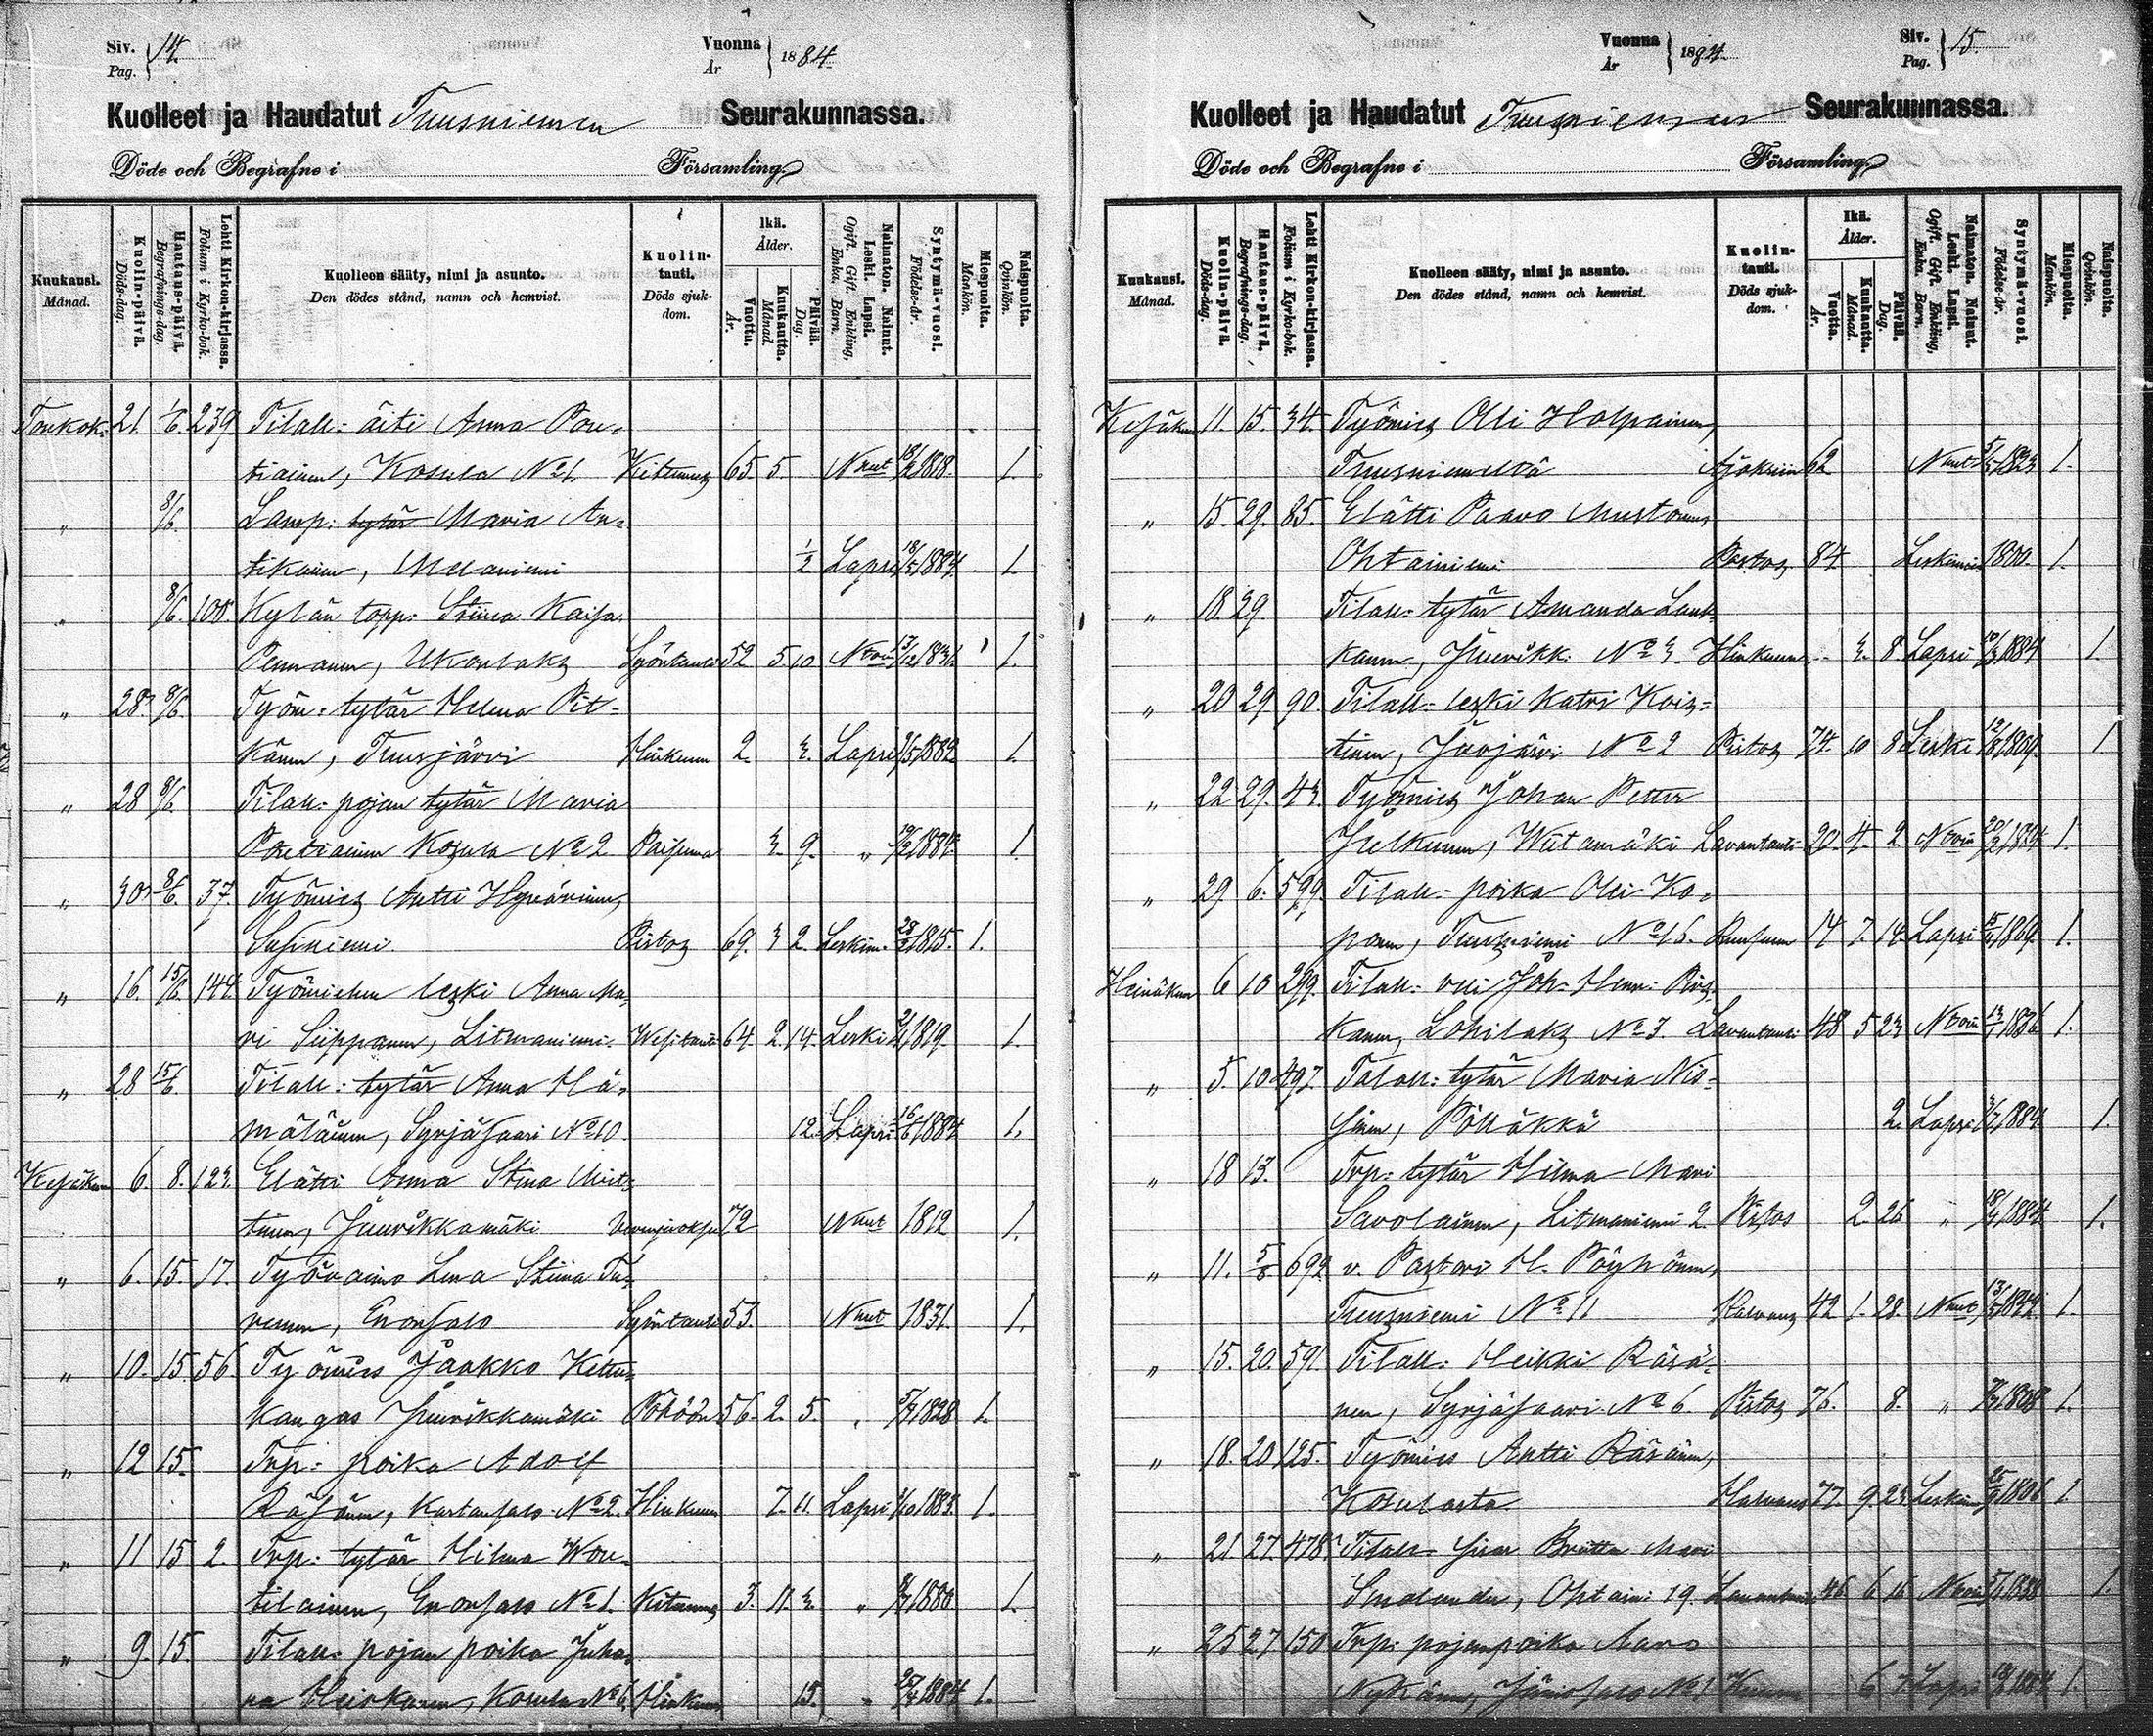 Siv. Pag. 14.
Vuonna År 1884.
Kuolleet ja Haudatut Tuusniemen Seurakunnassa.
Döde och Begrafne i Församling.
Kuukausi. Månad.
Kuolin-päivä. Döds-dag.
Hautaus-päivä. Begrafnings-dag.
Lehti Kirkon-kirjassa. Folium i Kyrko-bok.
Kuolleen sääty, nimi ja asunto. Den dödes stånd, namn och hemvist.
Kuolin-tauti. Döds sjuk-dom.
Ikä. Ålder.
Vuotta. År.
Kuukautta. Månad.
Päivää. Dag.
Naimaton. Nainut. Leski. Lapsi. Ogift. Gift. Enkling, Enka. Barn.
Syntymä-vuosi. Födelse-år.
Miespuolta. Mankön.
Naispuolta. Qvinkön.
Toukok. 21. 1/6. 239. Tilall: äiti Anna Pou-
tiainen, Kosula No 1. 65. 5. Nnut 1818. 1.
" 8/6. Lamp: tytär Maria An-
tikainen, Melaniemi 1/2 Lapsi 18/5 1884. 1.
" 8/6. 105. Kylän topp: Stiina Kaisa
Pennanen, Ukonlaks Syöntauti 52 5. 10 1.
" 28. 8/6. Työm: tytär Helena Pit-
känen, Tuusjärvi Hinkunen 2. 3. Lapsi 1882. 1.
" 28 8/6. Tilall: pojan tytär Maria
Poutiainen Kosula No 2 3. 9. " 19/2 1884. 1.
" 30 8/6. 37. Työmies Antti Hyvärinen,
Susiniemi. Pistos 69. 3 2. Leskim. 28/2 1815. 1.
" 16. 15/6. 144. Työmiehen leski Anna Ma-
ri Siippanen, Litmaniemi. Wesitauti 64. 2. 14. Leski 1819. 1.
" 28 15/6. Tilall: tytär Anna Hä-
mäläinen, Syrjäsaari No 10. 12. Lapsi 16/5 1884 1.
Kesäkuu 6. 8. 123. Elätti Anna Stina Miet-
tinen, Juurikkamäki 72 Nnut 1812 1.
" 6. 15. 17. Työvaimo Lena Stiina Tu-
runen, Enonsalo Syöntauti 53. Nnut 1831. 1.
" 10. 15. 56. Työmies Jaakko Kettu-
kangas Juurikkamäki Pöhöön 56. 2. 5. " 5/4 1828 1.
" 12 15. Trp: poika Adolf
Räsänen, Kartansalo No 2. Hinkunen 7. 11. Lapsi 1/10 1883. 1.
" 11 15 2. Trp: tytär Hilma Wou-
tilainen, Enonsalo No 1. 3. 11. 3. " 1880 1.
" 9. 15. Tilall: pojan poika Juha-
na Heiskanen, Kosula No 6. Hinkunen 15. " 25/4 1884 1.
Siv. Pag. 15.
Vuonna År 1884.
Kuolleet ja Haudatut Tuusniemen Seurakunnassa.
Döde och Begrafne i Församling.
Kuukausi. Månad.
Kuolin-päivä. Döds-dag.
Hautaus-päivä. Begrafnings-dag.
Lehti Kirkon-kirjassa. Folium i Kyrko-bok.
Kuolleen sääty, nimi ja asunto. Den dödes stånd, namn och hemvist.
Kuolin-tauti. Döds sjuk-dom.
Ikä. Ålder.
Vuotta. År.
Kuukautta. Månad.
Päivää. Dag.
Naimaton. Nainut. Leski. Lapsi. Ogift. Gift. Enkling, Enka. Barn.
Syntymä-vuosi. Födelse-år.
Miespuolta. Mankön.
Naispuolta. Qvinkön.
Kesäkuu 11. 15. 34. Työmies Olli Holpainen,
Tuusniemeltä 62 Nnut 1.
" 15. 29. 85. Elätti Paavo Mustonen,
Ohtainiemi Pistos 84. Leskimies 1800. 1.
" 18. 29 Tilall: tytär Amanda Lauk-
kanen, Juurikk. No 3. Hinkunen 3. 8. Lapsi 10/3 1884 1.
" 20 29 90. Tilall: leski Katri Kois-
tinen, Juojärvi No 2 Pistos 74. 10 8 Leski 12/8 1809. 1.
" 22 29. 43. Työmies Johan Petter
Julkunen, Wiitamäki Lavantauti 20. 4. 2 1.
" 29 6. 599. Tilall: poika Olli Ko-
ponen, Tuusniemi No 16. 14 7. 14. Lapsi 1869. 1.
Heinäkuu 6 10 299. Tilall: veli Joh. Henr: Pirs-
kanen, Lohilaks No 3. Lavantauti 48 5 23 1836 1.
" 5. 10 497. Talall: tytär Maria Nis-
sinen, Pölläkkä 2. Lapsi 3/7 1884. 1.
" 18 13. Trp: tytär Hilma Mari
Savolainen, Litmaniemi 2. Pistos 2. 26 " 18/4 1884 1.
" 11. 5/8 692 v. Pastori H. Pöyhönen,
Tuusniemi No 11 Halvaus 42 1. 28. Nnut 13/5 1842. 1.
" 15. 20. 591. Tilall: Heikki Räsä-
nen, Syrjäsaari No 6. Pistos 76. 8. " 7/7 1808 1.
" 18. 20 125. Työmies Antti Räsänen,
Kosulasta Halvaus 77. 9. 23 Leskim 25/9 1806 1.
" 21 27. 478. Tilall: sisar Britta Mari
Smolander, Ohtain: 19. Lavantauti 46 6 16 1.
" 25 27 150 Trp: pojanpoika Aaro
Nykänen, Jänissalo No 1 6 7 Lapsi 1884 1.